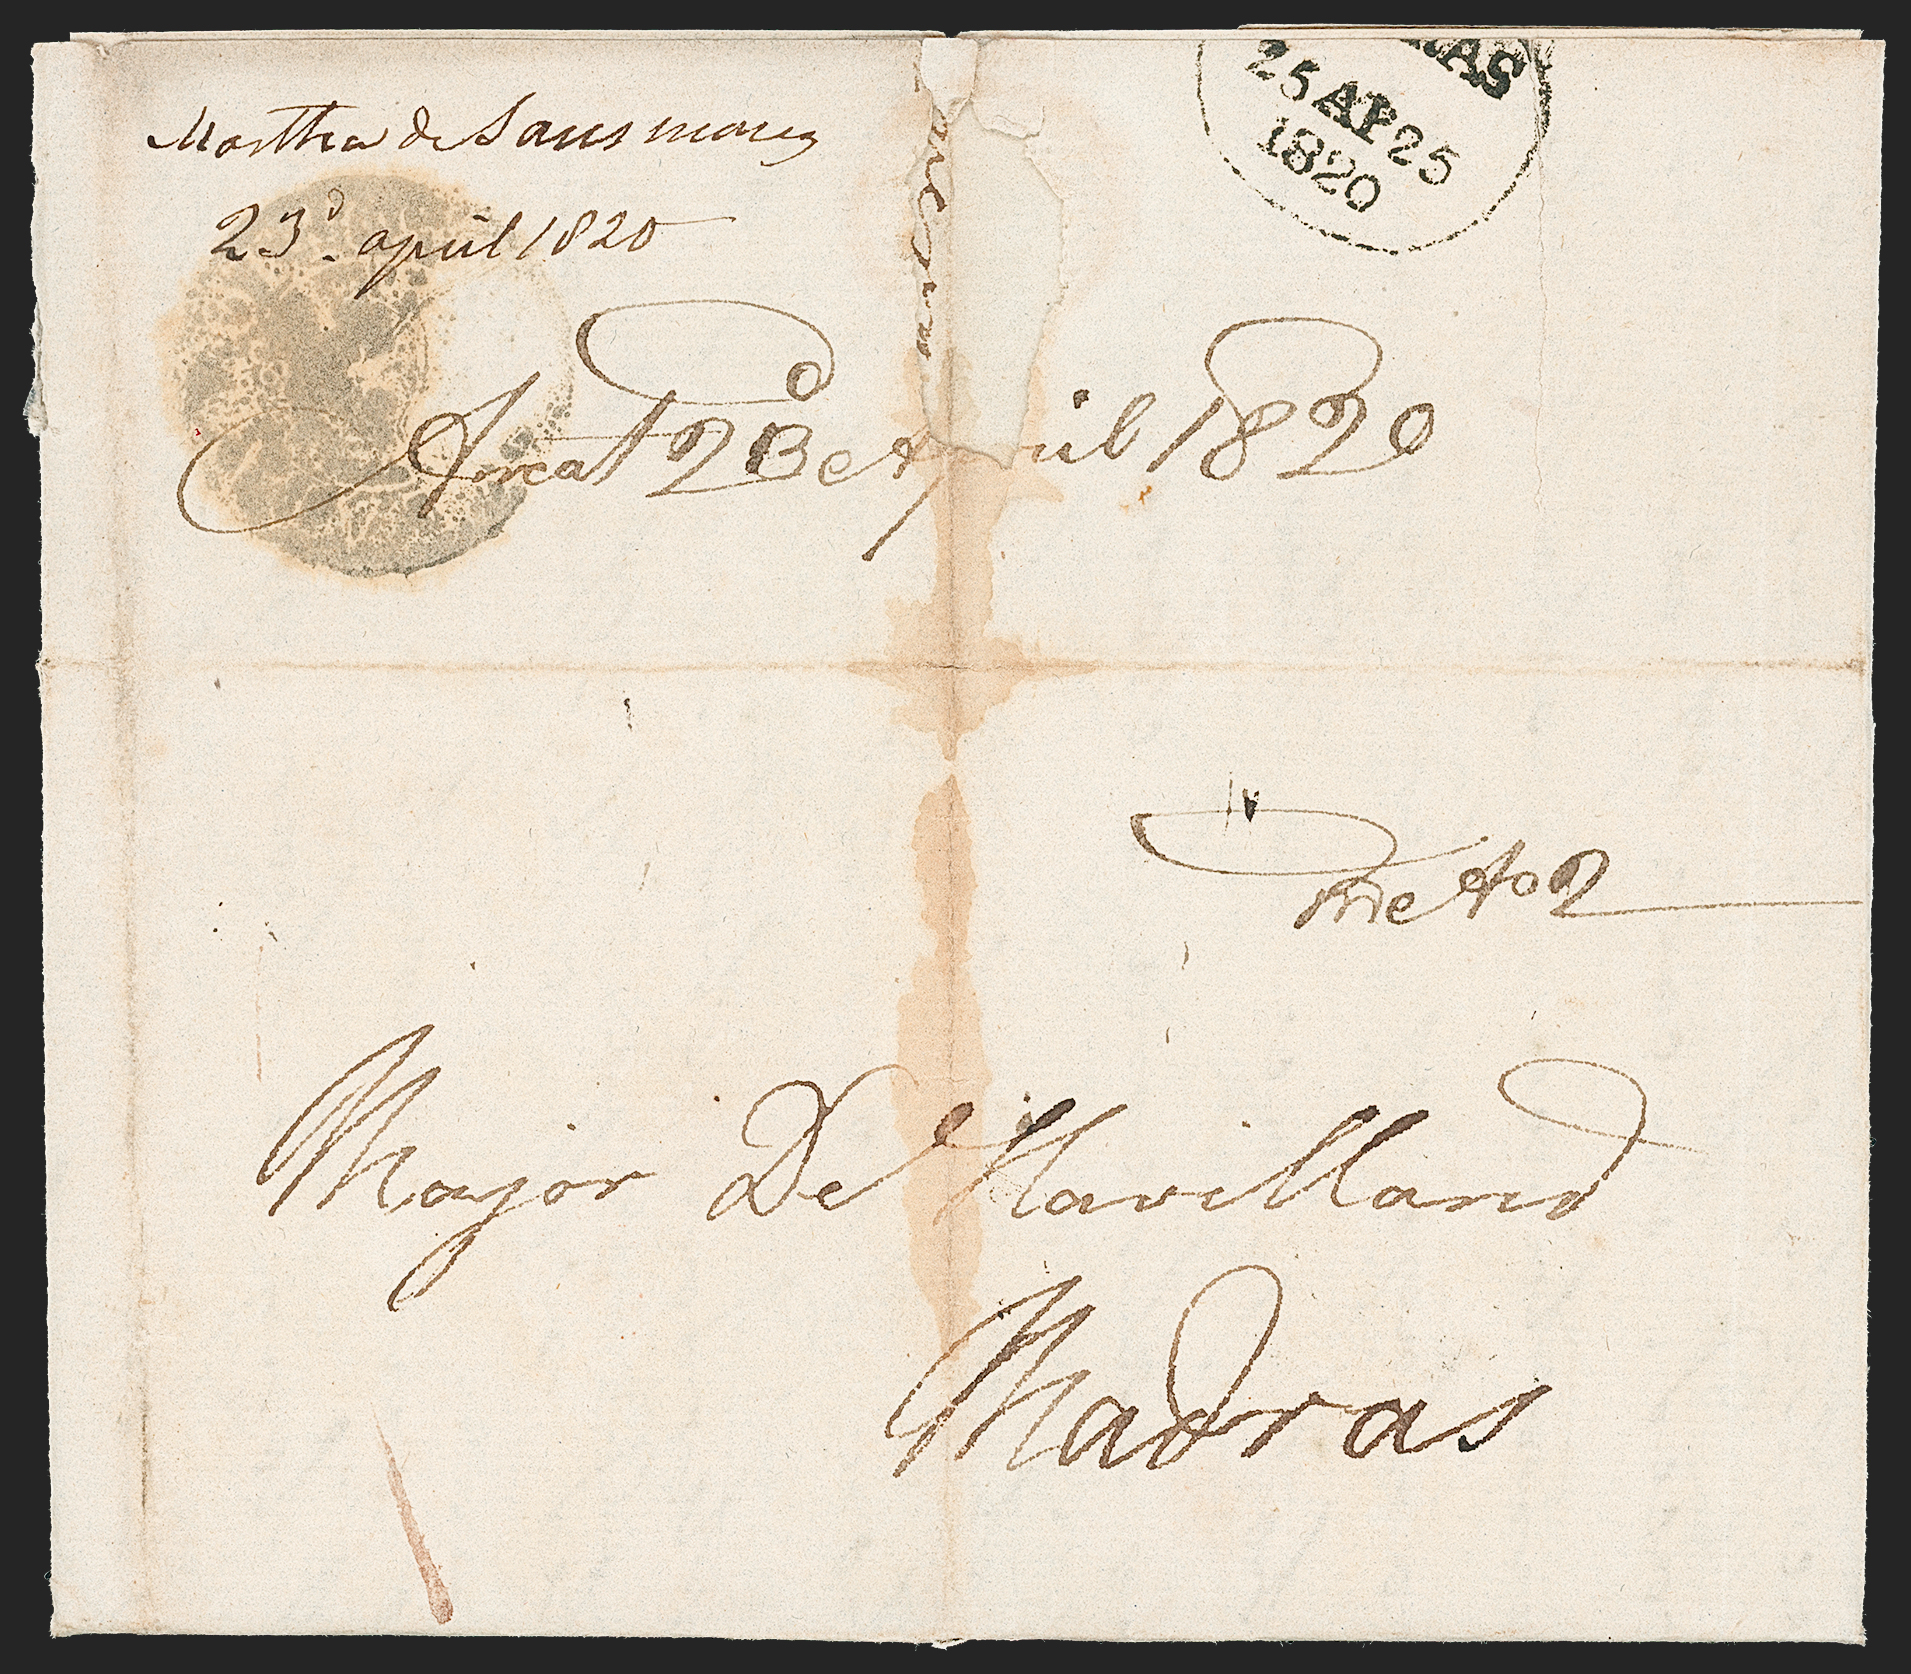 Martha de Sausmarez
23d. april 1820
RAS
25 AP 25
1820
Arcat 23 April 1820
Major De Havilland
Madras